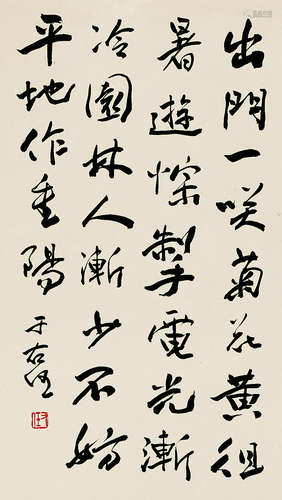 出門一咲菊花黃徂
暑遊悰掣電光漸
冷園林人漸少不妨
平地作重陽
于右任